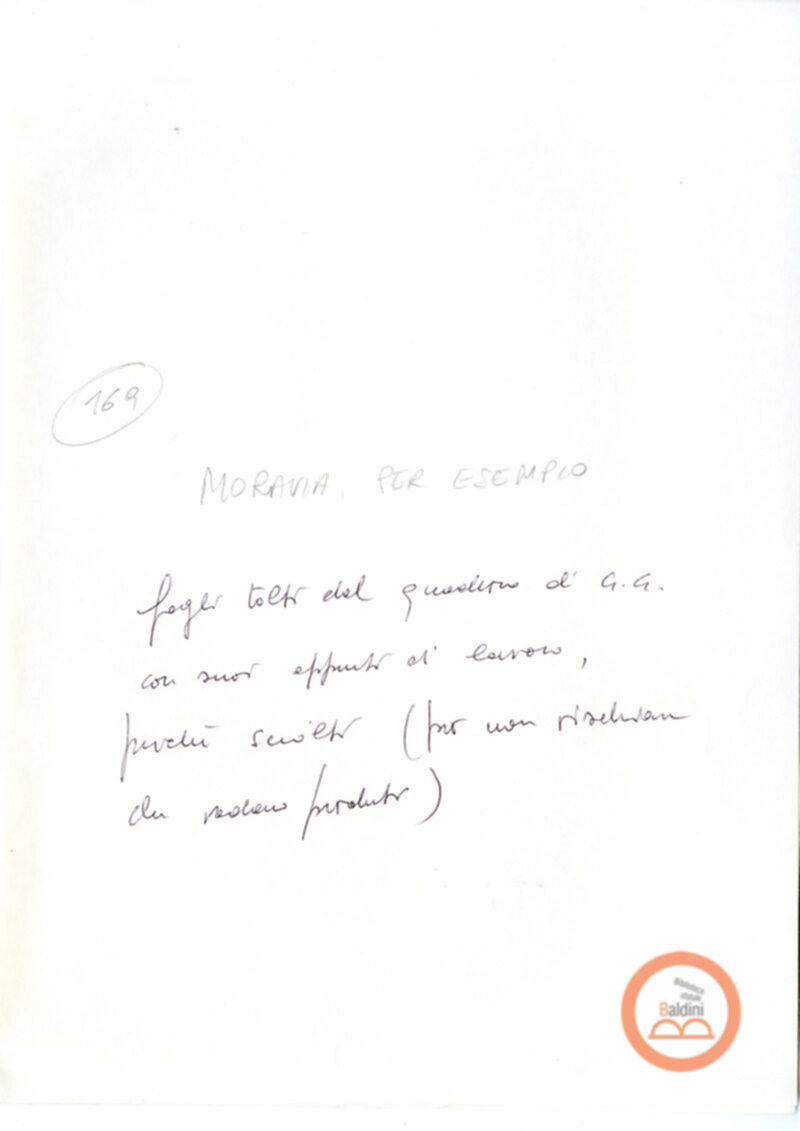 169
MORAVIA, PER ESEMPIO
fogli tolti dal quaderno di G.G.
con suoi appunti di lavoro,
perché sciolti (per non rischiare
che vadano perduti)
Biblioteca
statale
Baldini